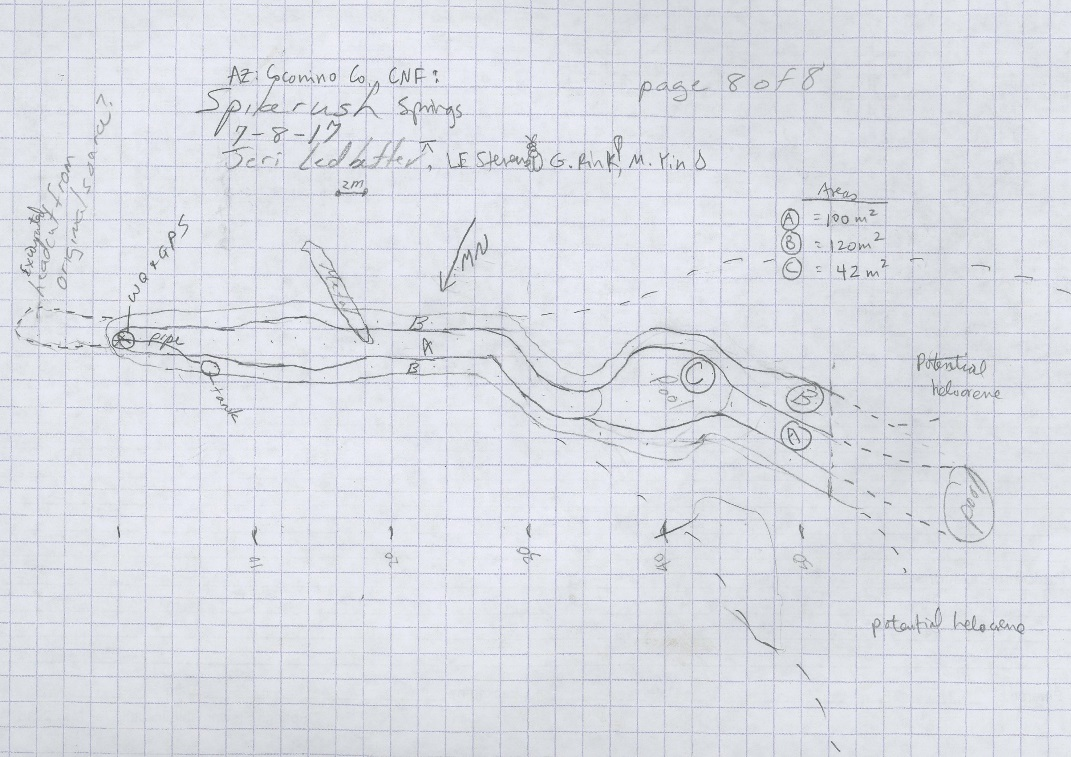 AZ: Coconino Co, CNF:
page 8 of 8
Spikerush Springs
7-8-17
Jeri Ledbetter, LE Stevens, G. Rink, M. Yin
2m
Areas
A = 100 m²
B = 120 m²
C = 42 m²
Excavated
headcut from
original source?
WQ + GPS
MN
B
pipe
A
B
tank
C
B
A
Potential
helocrene
pool
10
20
30
40
50
potential helocrene